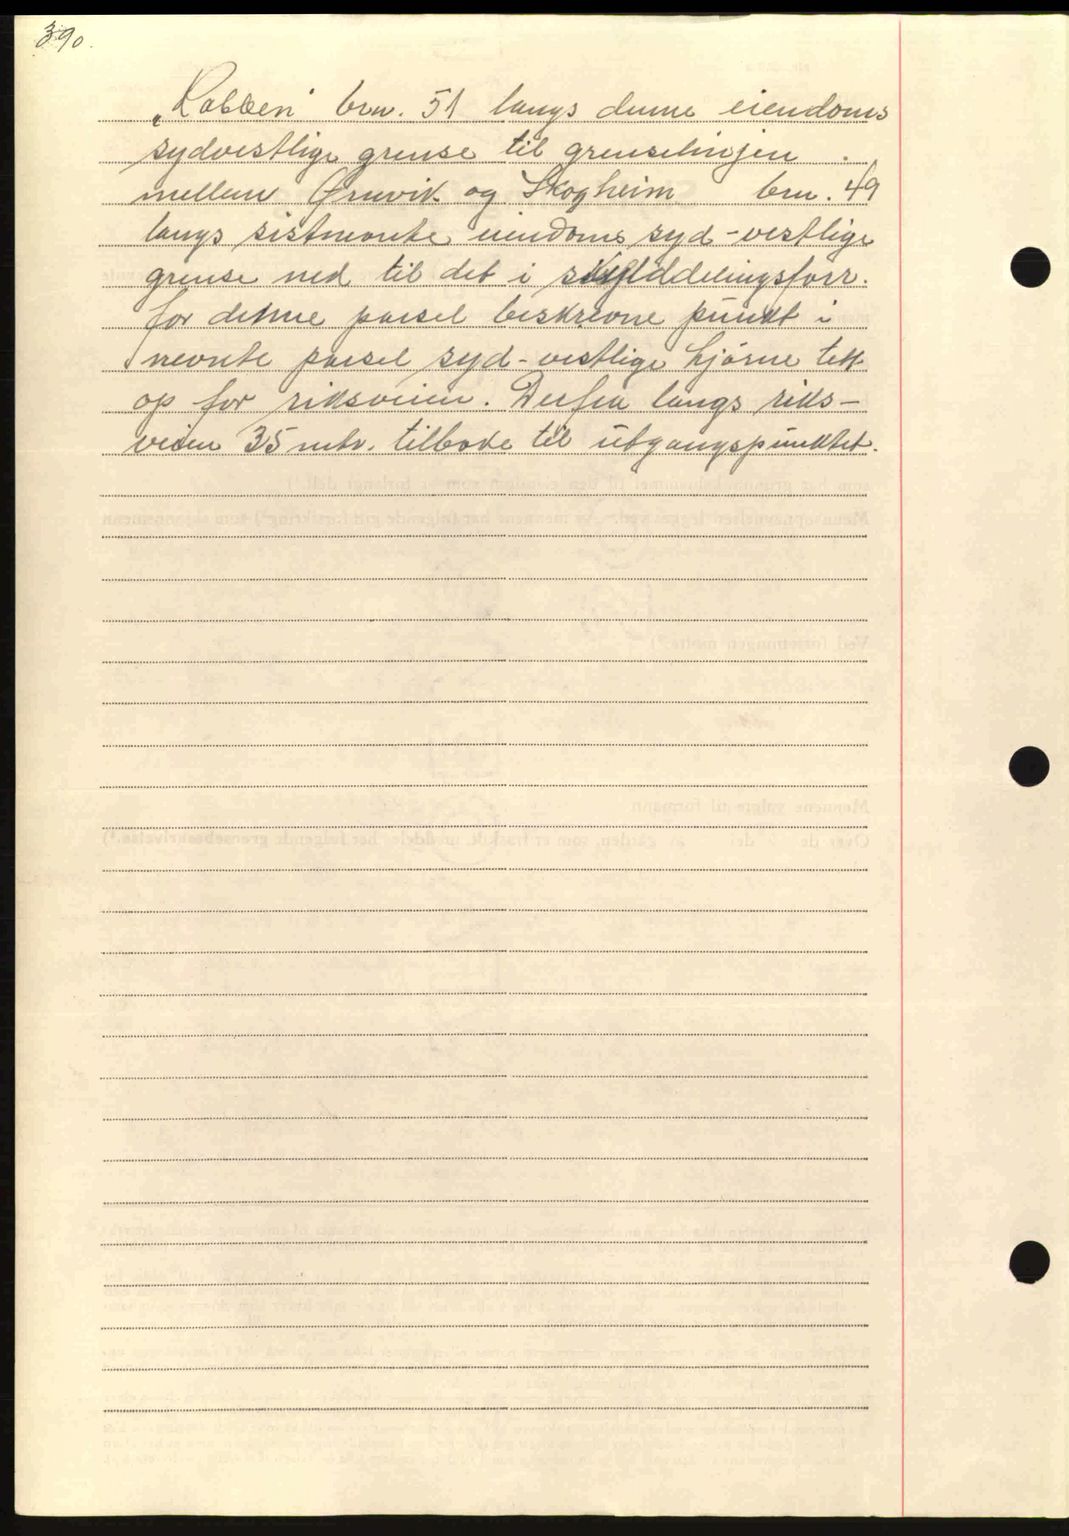 390.
"Rabben" brn. 51 langs denne eiendoms
sydvestlige grense til grenselinjen .
mellem Ørnvik og Skogheim brn. 49
langs sistnevnte eiendoms syd-vestlige
grense ned til det i skylddelingsforr.
for denne parsel beskrevne punkt i
nevnte parsel syd-vestlige hjørne tett
op for riksveien. Derfra langs riks-
veien 35 mtr. tilbake til utgangspunktet.